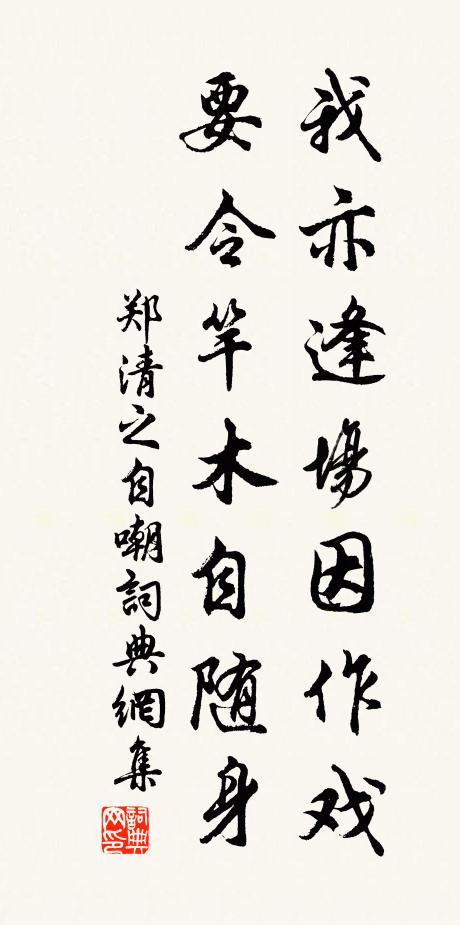 我亦逢場因作戏
要令竿木自随身
郑清之自嘲詞典網集
詞典
网印